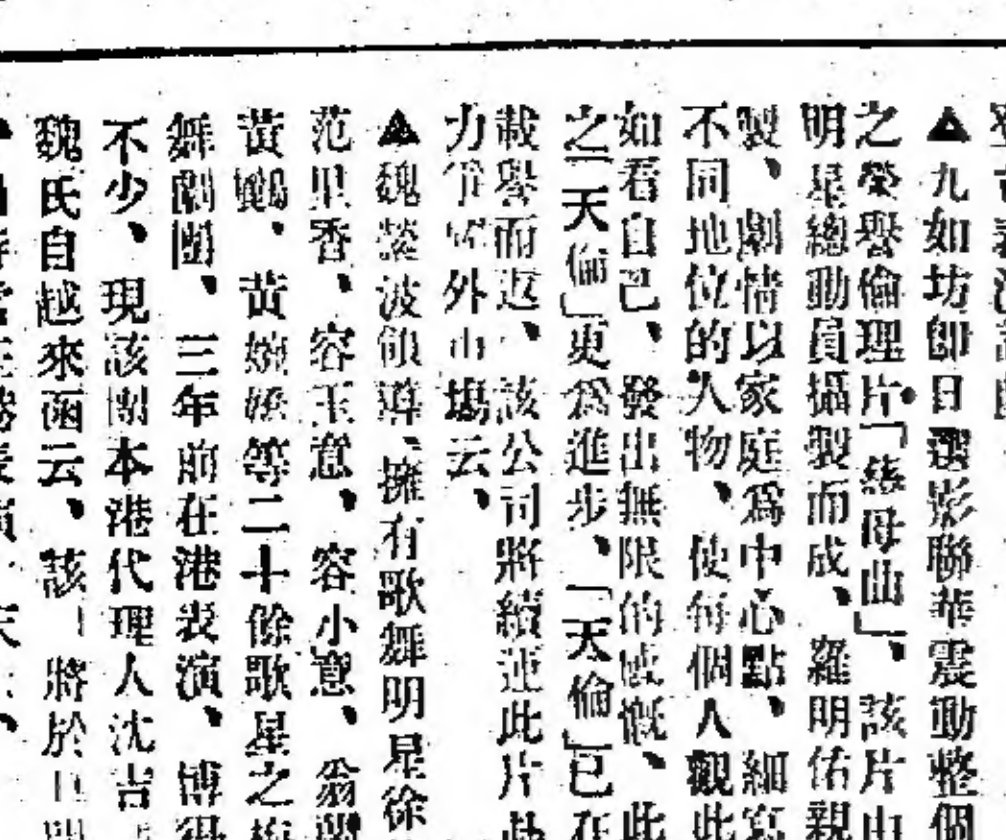 ▲九如坊卽日選影聯華震動整個
之榮譽倫理片「慈母曲」、該片由
明星總動員攝製而成、羅明佑親
製、劇情以家庭爲中心點、細寫
不同地位的人物、使每個人觀此
如看自己、發出無限的感慨、此
之「天倫」更爲進步、「天倫」已在
載譽而返、該公司將續運此片
力爭外市場云、
▲魏縈波領導、擁有歌舞明星徐
范里香、容玉意、容小意、翁
黃鶴、黃婉嬌等二十餘歌星之
舞劇團、三年前在港表演、博得
不少、現該團本港代理人沈吉
魏氏自越來函云、該 將於